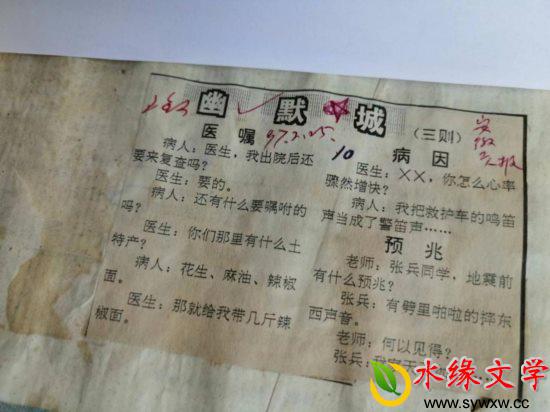 幽默城
（三则）
医嘱
97.2.25.
病人：医生，我出院后还
要来复查吗？
医生：要的。
病人：还有什么要嘱咐的
吗？
医生：你们那里有什么土
特产？
病人：花生、麻油、辣椒
面。
医生：那就给我带几斤辣
椒面。
10
病因
医生：××，你怎么心率
骤然增快？
病人：我把救护车的鸣笛
声当成了警笛声……
预兆
老师：张兵同学，地震前
有什么预兆？
张兵：有劈里啪啦的摔东
西声音。
老师：何以见得？
张兵：我
安徽
水缘文学
www.sywxw.cc